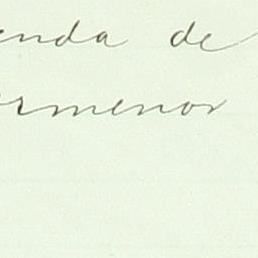 enda de
ermenor